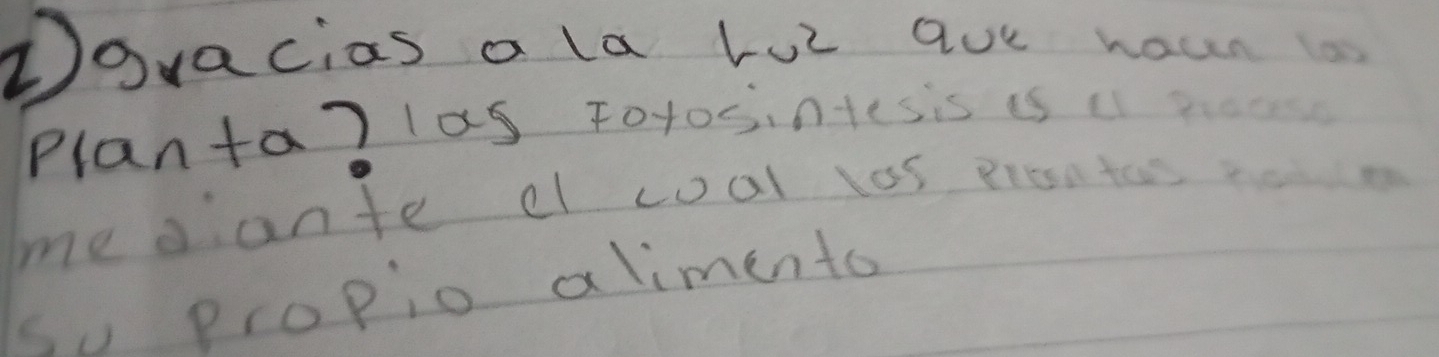 2) gracias a la Luz que hacen las
Planta? las Fotosintesis es el Proceso
mediante el coal las Plantas
su propio alimento